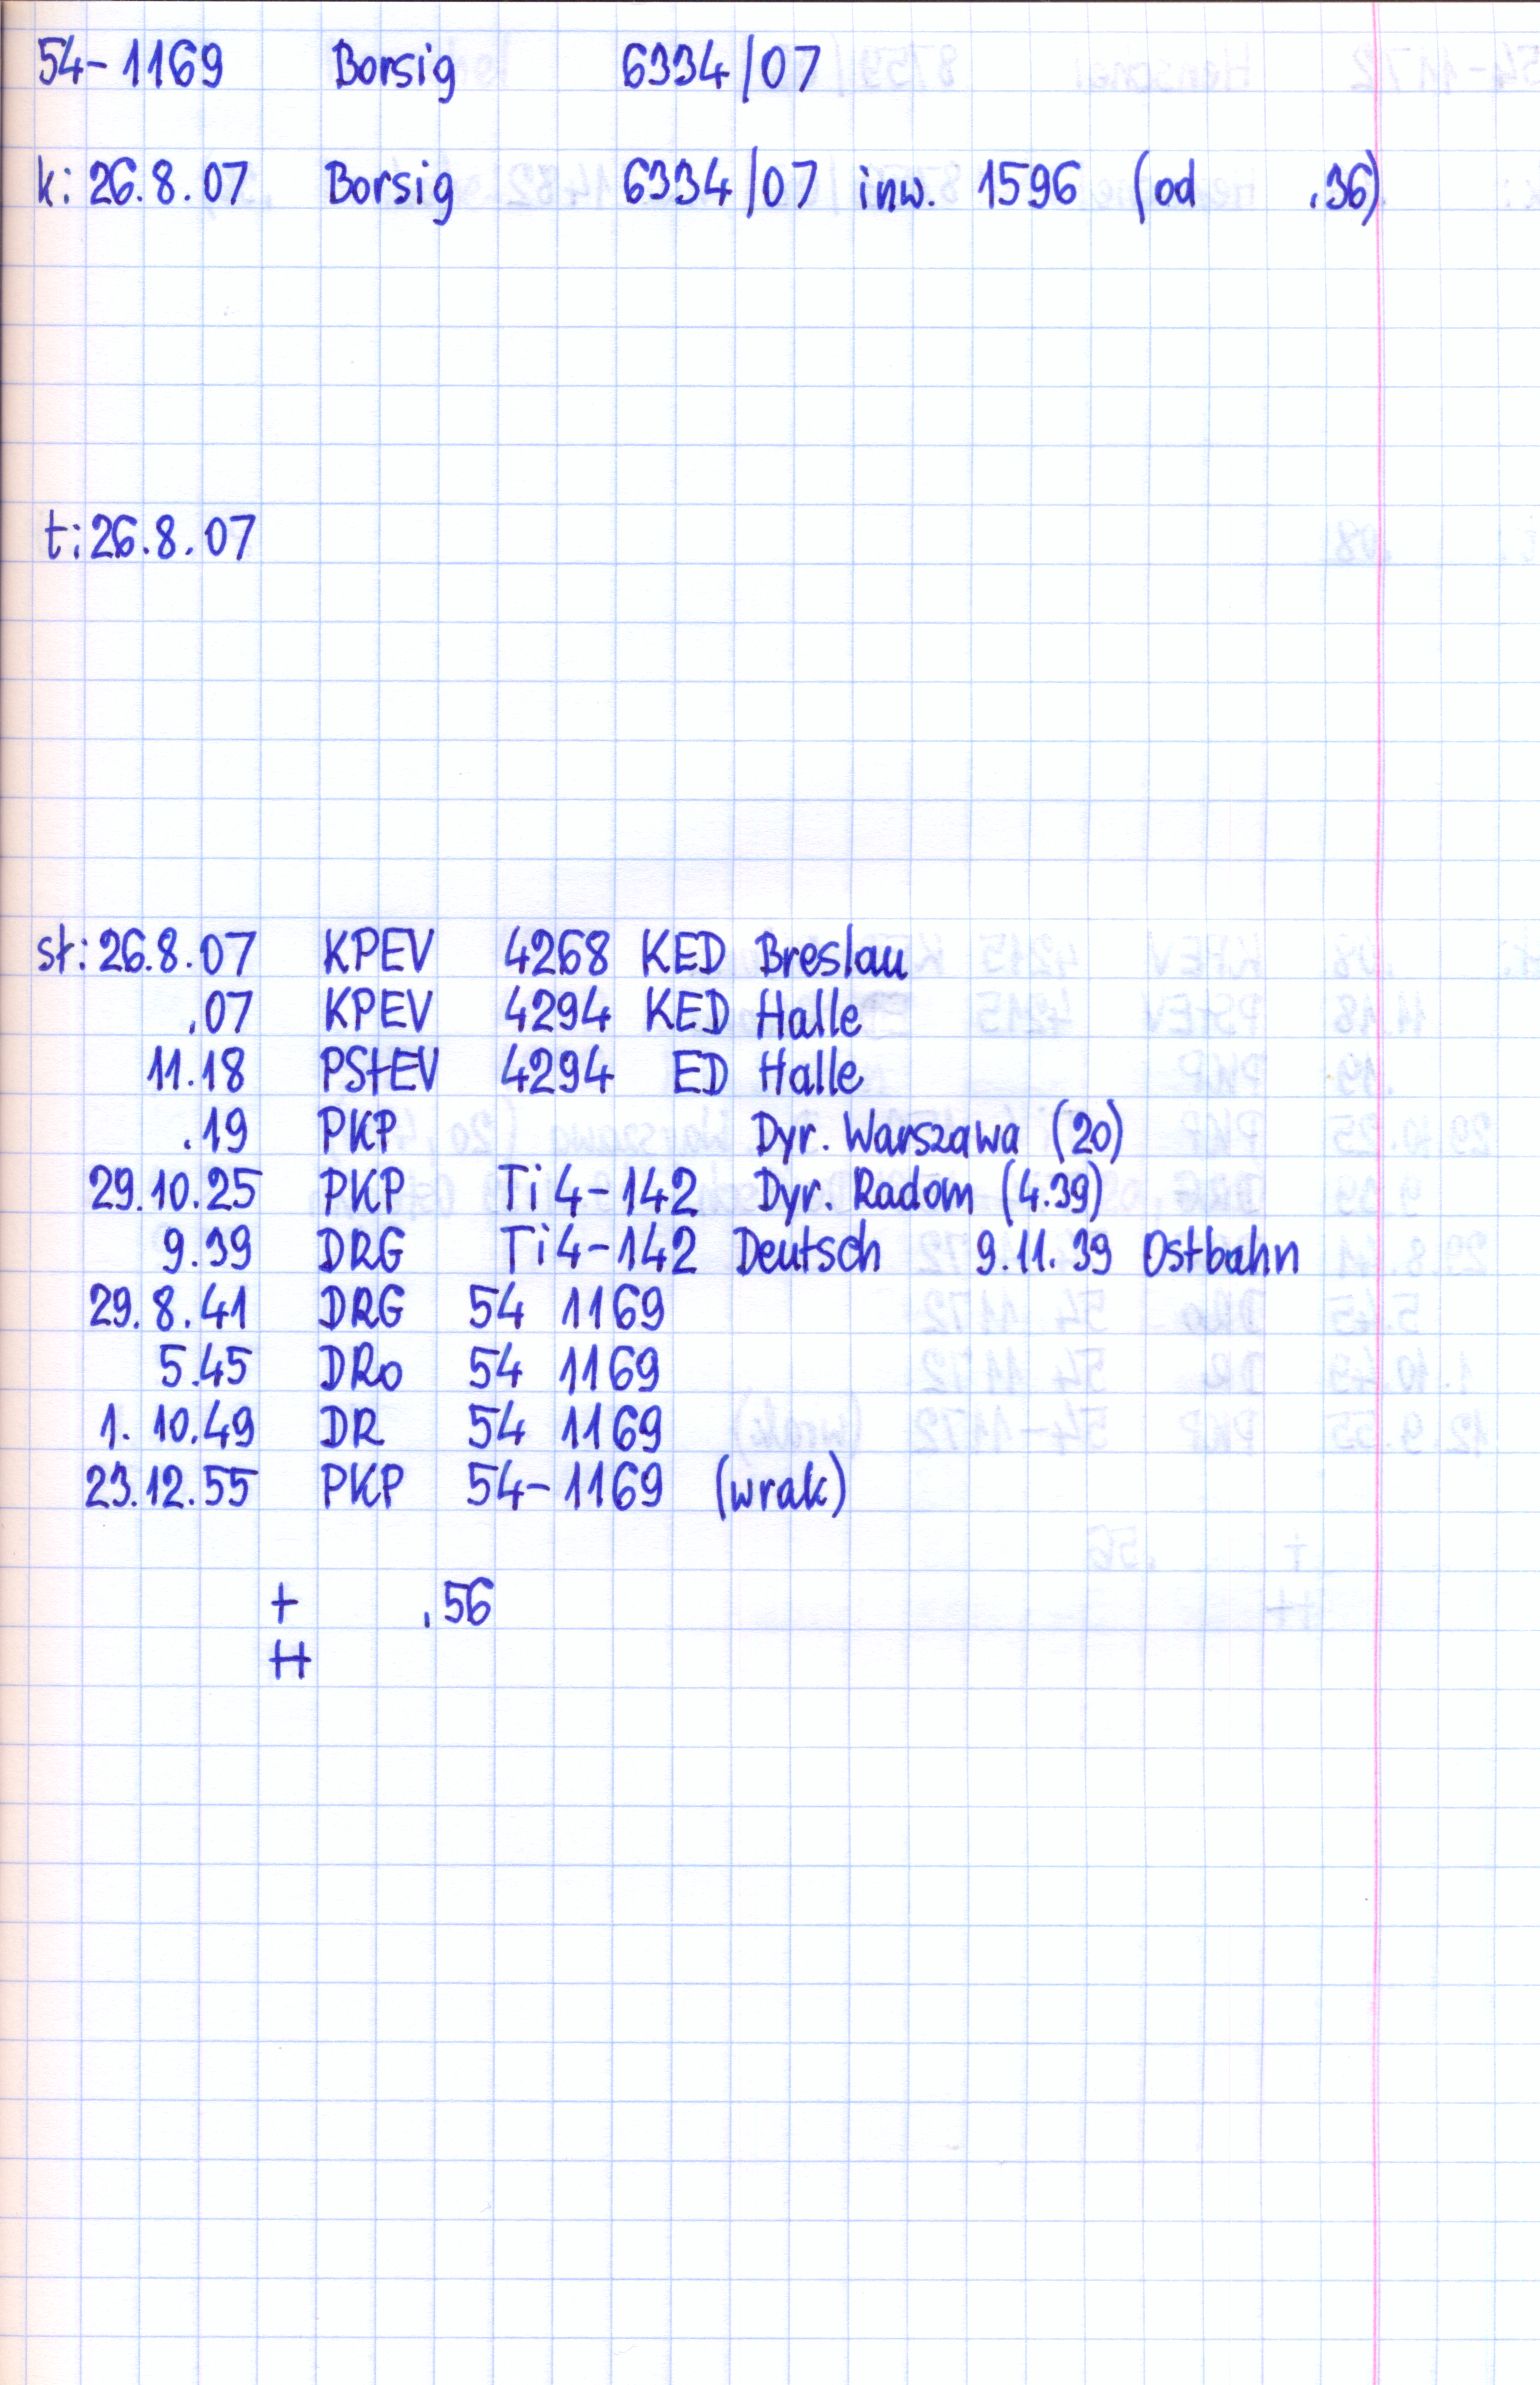 54-1169 Borsig 6334/07
k: 26.8.07 Borsig 6334/07 inw. 1596 (od .36)
t: 26.8.07
st: 26.8.07 KPEV 4268 KED Breslau
.07 KPEV 4294 KED Halle
11.18 PStEV 4294 ED Halle
.19 PKP Dyr. Warszawa (20)
29.10.25 PKP Ti4-142 Dyr. Radom (4.39)
9.39 DRG Ti4-142 Deutsch 9.11.39 Ostbahn
29.8.41 DRG 54 1169
5.45 DRo 54 1169
1. 10.49 DR 54 1169
23.12.55 PKP 54-1169 (wrak)
+ .56
++